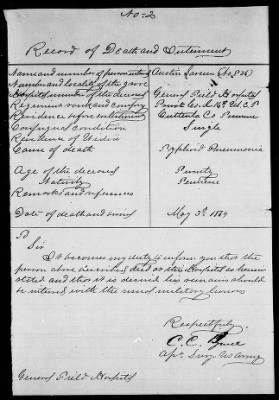 No 2
Record of Death and Interment
Name and number of person interred Austin James (No 826)
Number and locality of the grave
Hospital number of the deceased General Field Hospital
Regiment rank and company Private Co. A 18th
Residence before enlistment Co
Conjugal condition Single
Residence of Widow
Cause of death Typhoid Pneumonia
Age of the deceased Twenty
Nativity
Remarks and references
Date of death and May 3d 1864
Sir
It becomes my duty to inform you that the
person above died at this Hospital as herein
stated and that it is desired his remains should
be interred with the usual military honors
Respectfully.
C. C.
Surg US Army
General Field Hospital